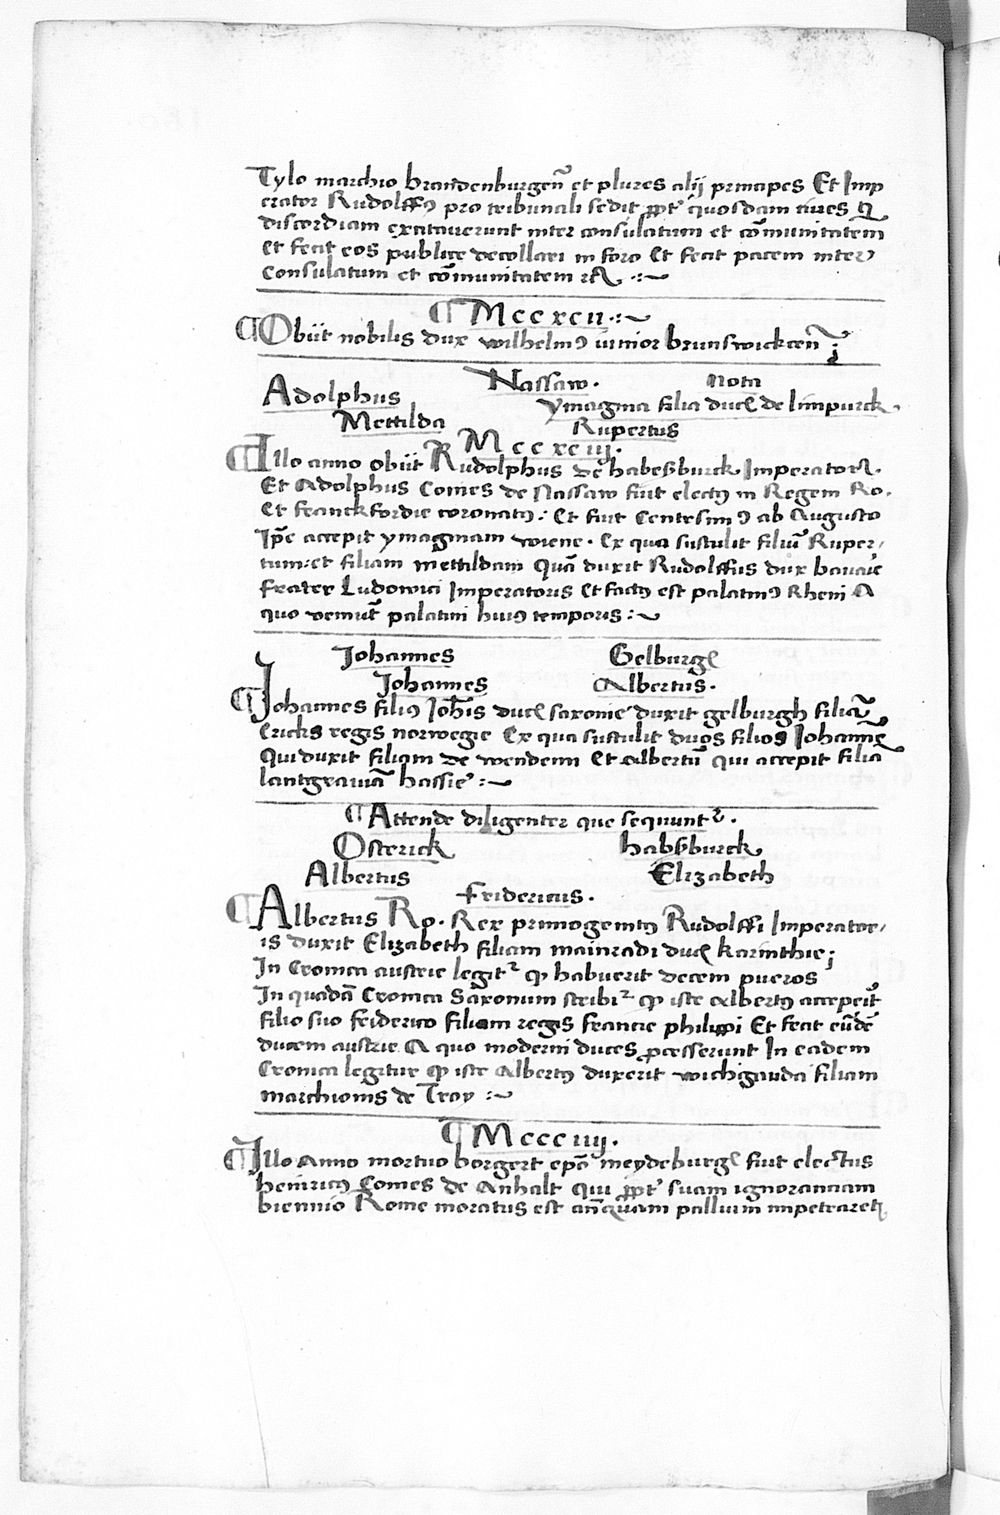 Tylo marchio brandenburgen̄ et plures alij principes Et Imp
erator Rudolffꝰ pro tribunali sedit ꝓpt' quosdam ciues qͥ
discordiam excitauerunt inter consulatum et cōmunitatem
Et fecit eos publice decollari in foro Et fecit pacem inter
Consulatum et cōmunitatem ꝛc̄
¶ Mccxcii
¶ Obiit nobilis dux wilhelmꝰ iunior brunswickcen̄
Nassaw. nota
Adolphus ymagina filia ducꝭ de limpurck
Mettilda Rupertus
Mccxciij.
¶ Illo anno obiit Rudolphus de habeßburck Imperator.
Et Adolphus Comes de Nassaw fuit electꝰ in Regem Ro.
Et franckfordie coronatꝰ: Et fuit Centesimꝰ ab Augusto
Ip̄e accepit ymaginam wiene. Ex qua sustulit filiū Ruper/
tum: et filiam mettildam Quā duxit Rudolffus dux bauarie
frater Ludowici Imperatoris Et factꝰ est palatinꝰ Rheni A
quo veniūt palatini huiꝰ temporis:
Johannes Gelburgꝭ
Johannes Albertus.
¶ Johannes filiꝰ Joh̄is ducꝭ saxonie duxit gelburgh filiā
Ericks regis norwegie Ex qua sustulit duos filios Johannē
Qui duxit filiam de wendenn Et albertū qui accepit filiā
lantgrauiā hassie:
¶ Attende diligenter que sequuntʳ.
Osterick habßburck
Albertus Elizabeth
Fridericus.
¶ Albertus Ro. Rex primogenitꝰ Rudolffi Imperator/
is duxit Elizabeth filiam mainradi ducꝭ karinthie;
In Cronica austrie legitʳ ꝙ habuerit decem pueros
In quadā Cronica Saxonum scribiʳ ꝙ iste albertꝰ acceperit
filio suo friderico filiam regis francie philippi Et fecit eūdē
ducem austrie A quo moderni duces ꝓcesserunt In eadem
Cronica legitur ꝙ iste Albertꝰ duxerit wichigarda filiam
marchionis de Troy:
¶ Mccciiij.
¶ Illo Anno mortuo borgert ep̄o meydeburgꝭ fuit electus
heinricꝰ Comes de Anhalt qui ꝓpt' suam ignoranciam
biennio Rome moratus est an̄quam pallium impetraret